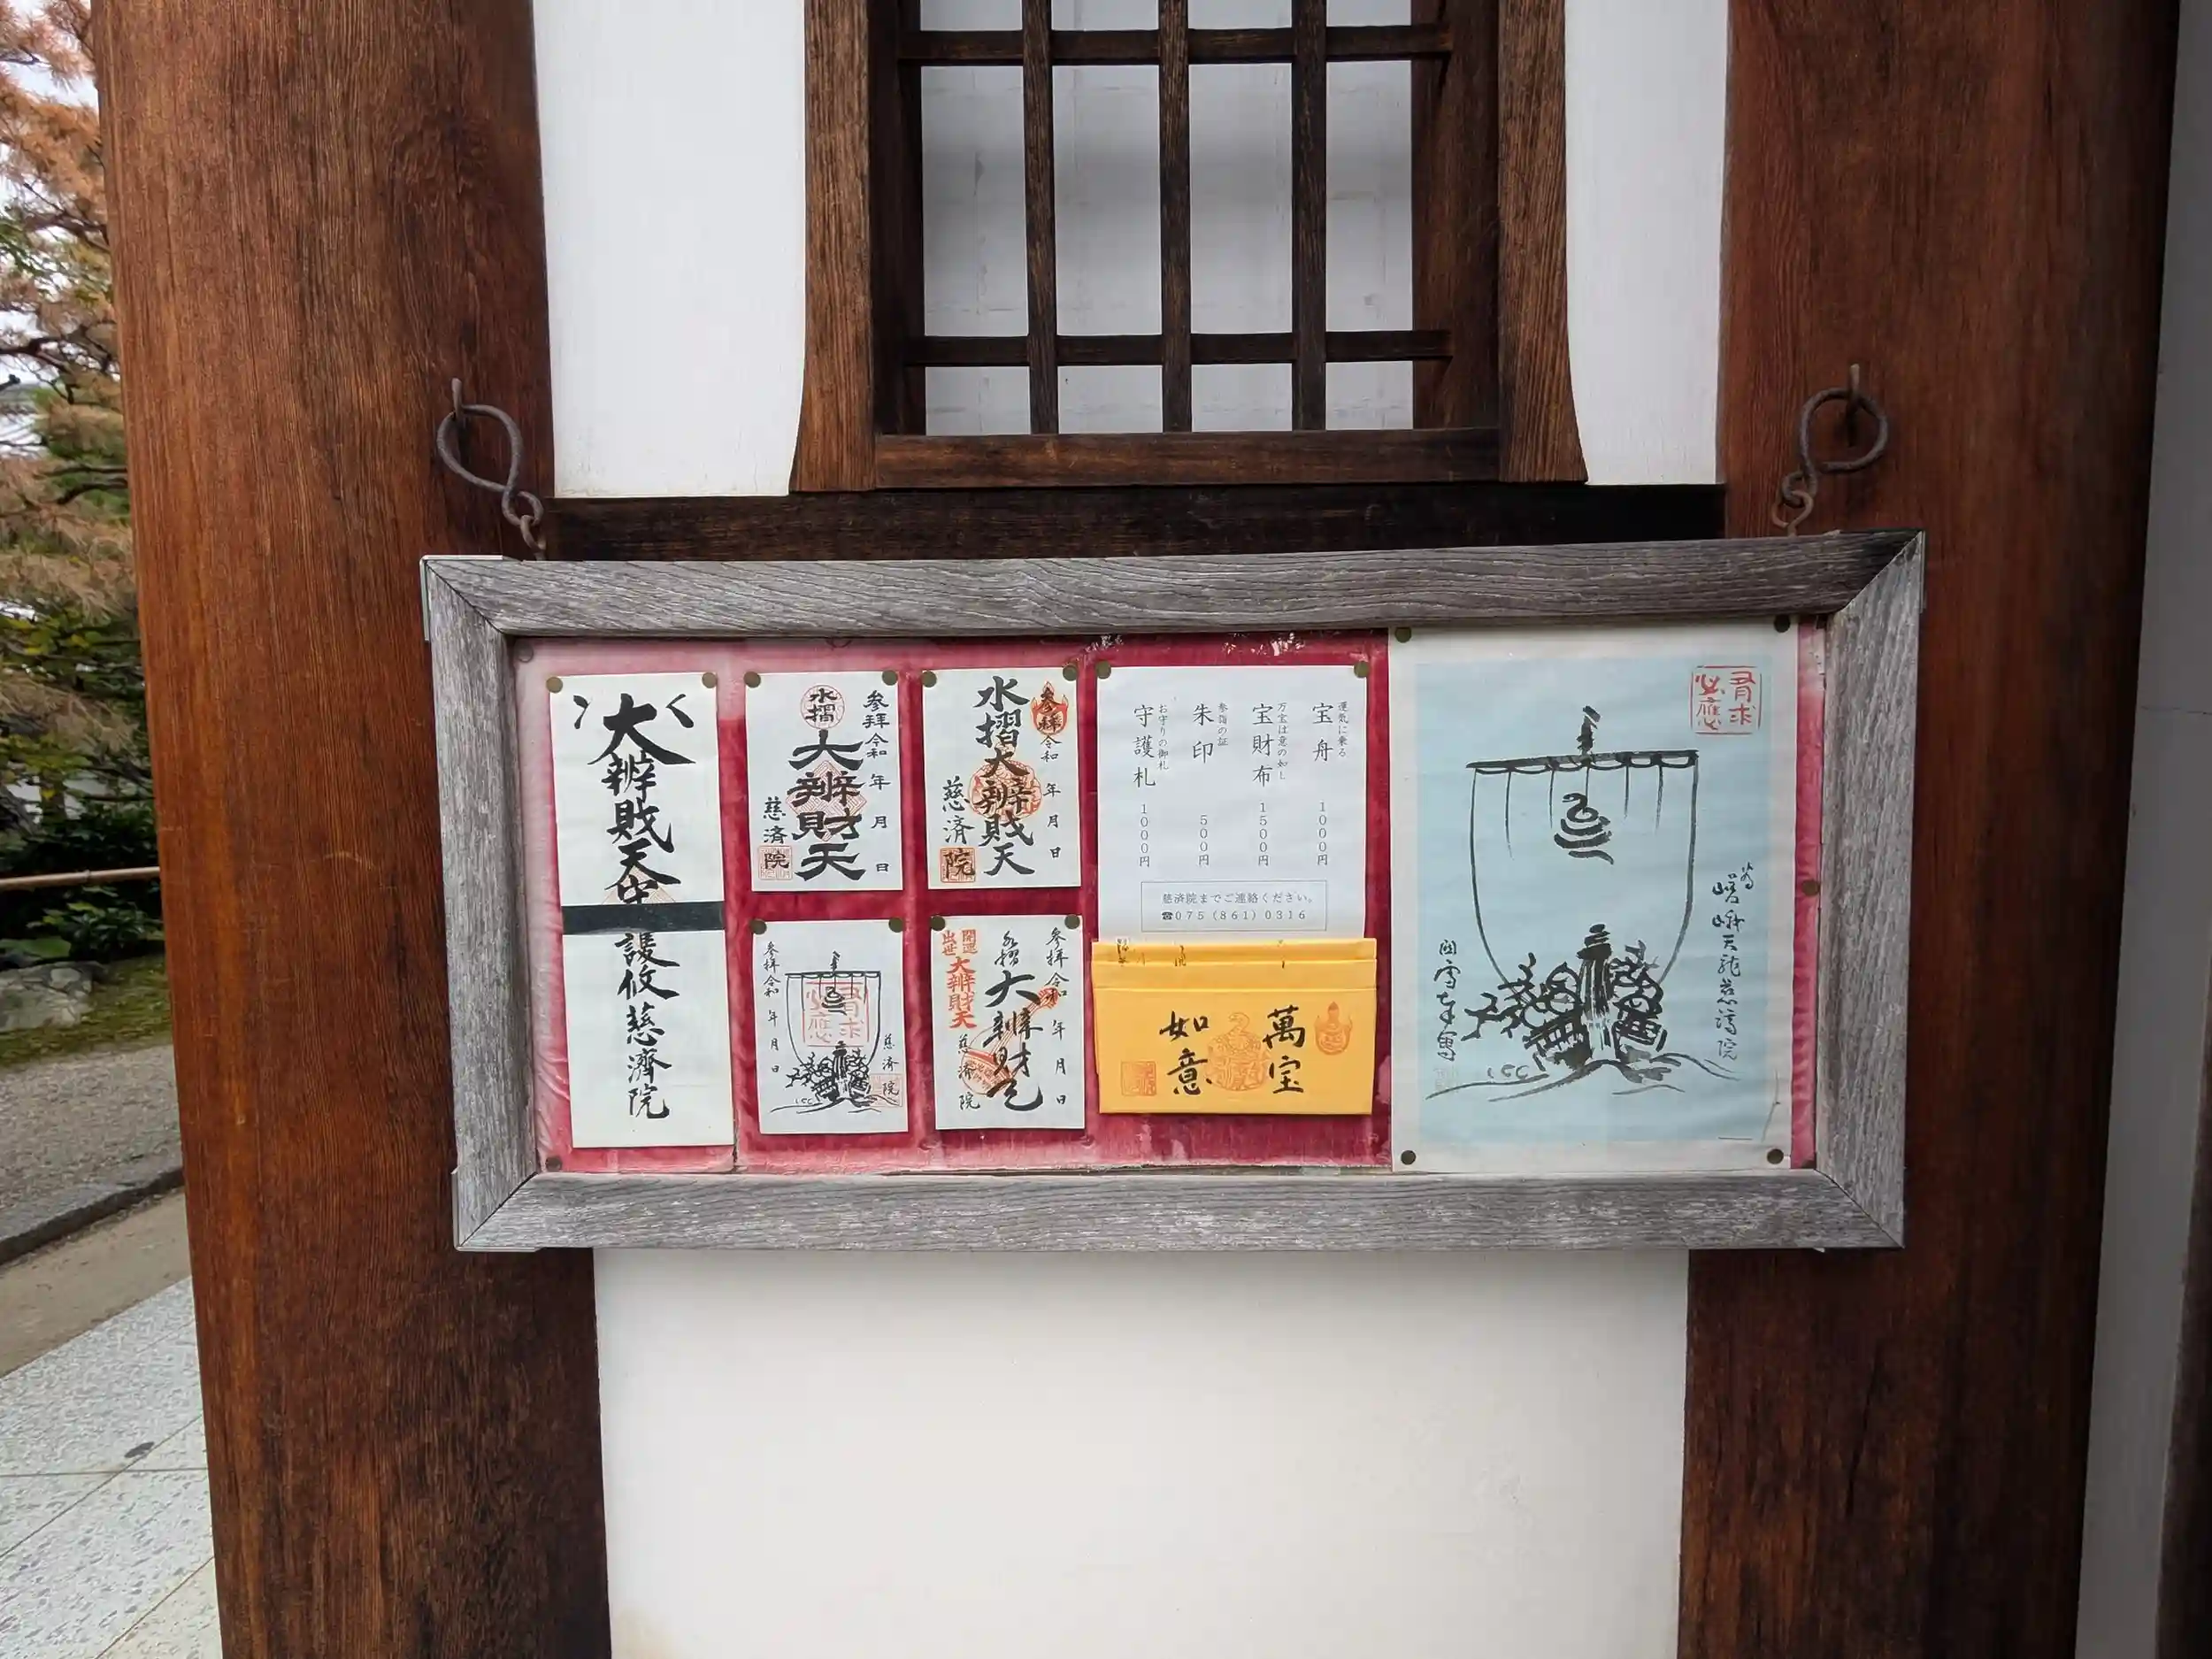 大辨財天守護攸慈濟院
水摺
参拝令和 年 月 日
大辨財天
慈済院
参拝
令和 年 月 日
水摺大辨財天
慈済院
参拝令和 年 月 日
有求
必應
慈済院
参拝令和 年 月 日
水摺
大辨財天
開運
出世
大辨財天
慈済院
運気に乗る
宝舟 1000円
万宝は意の如し
宝財布 1500円
参詣の証
朱印 500円
お守りの御札
守護札 1000円
慈済院までご連絡ください。
☎075(861)0316
萬宝
如意
有求
必應
嵯峨天龍慈済院